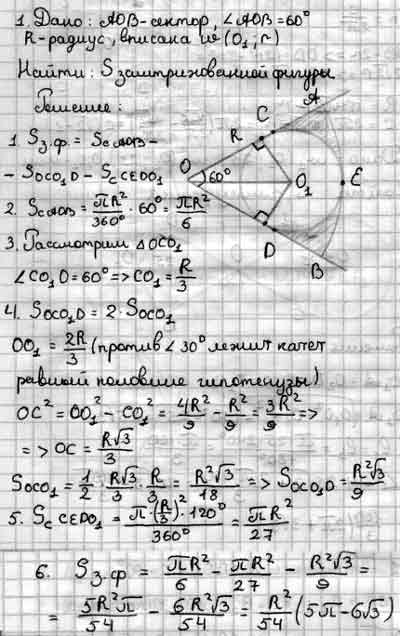 1. Дано: AOB-сектор, ∠AOB=60°
R-радиус, вписана ω(O₁; r)
Найти: S заштрихованной фигуры
Решение:
1. Sз.ф = ScAOB −
− SOCO₁D − ScCEDO₁
2. ScAOB = πR²/360° · 60° = πR²/6
3. Рассмотрим △OCO₁
∠CO₁D = 60° => CO₁ = R/3
4. SOCO₁D = 2 · SOCO₁
OO₁ = 2R/3 (против ∠30° лежит катет
равный половине гипотенузы)
OC² = OO₁² − CO₁² = 4R²/9 − R²/9 = 3R²/9 =>
=> OC = R√3/3
SOCO₁ = 1/2 · R√3/3 · R/3 = R²√3/18 => SOCO₁D = R²√3/9
5. Sc CEDO₁ = π·(R/3)²·120°/360° = πR²/27
6. Sз.ф = πR²/6 − πR²/27 − R²√3/9 =
= 5R²π/54 − 6R²√3/54 = R²/54 (5π−6√3)
A
C
R
O
60°
O₁
E
D
B